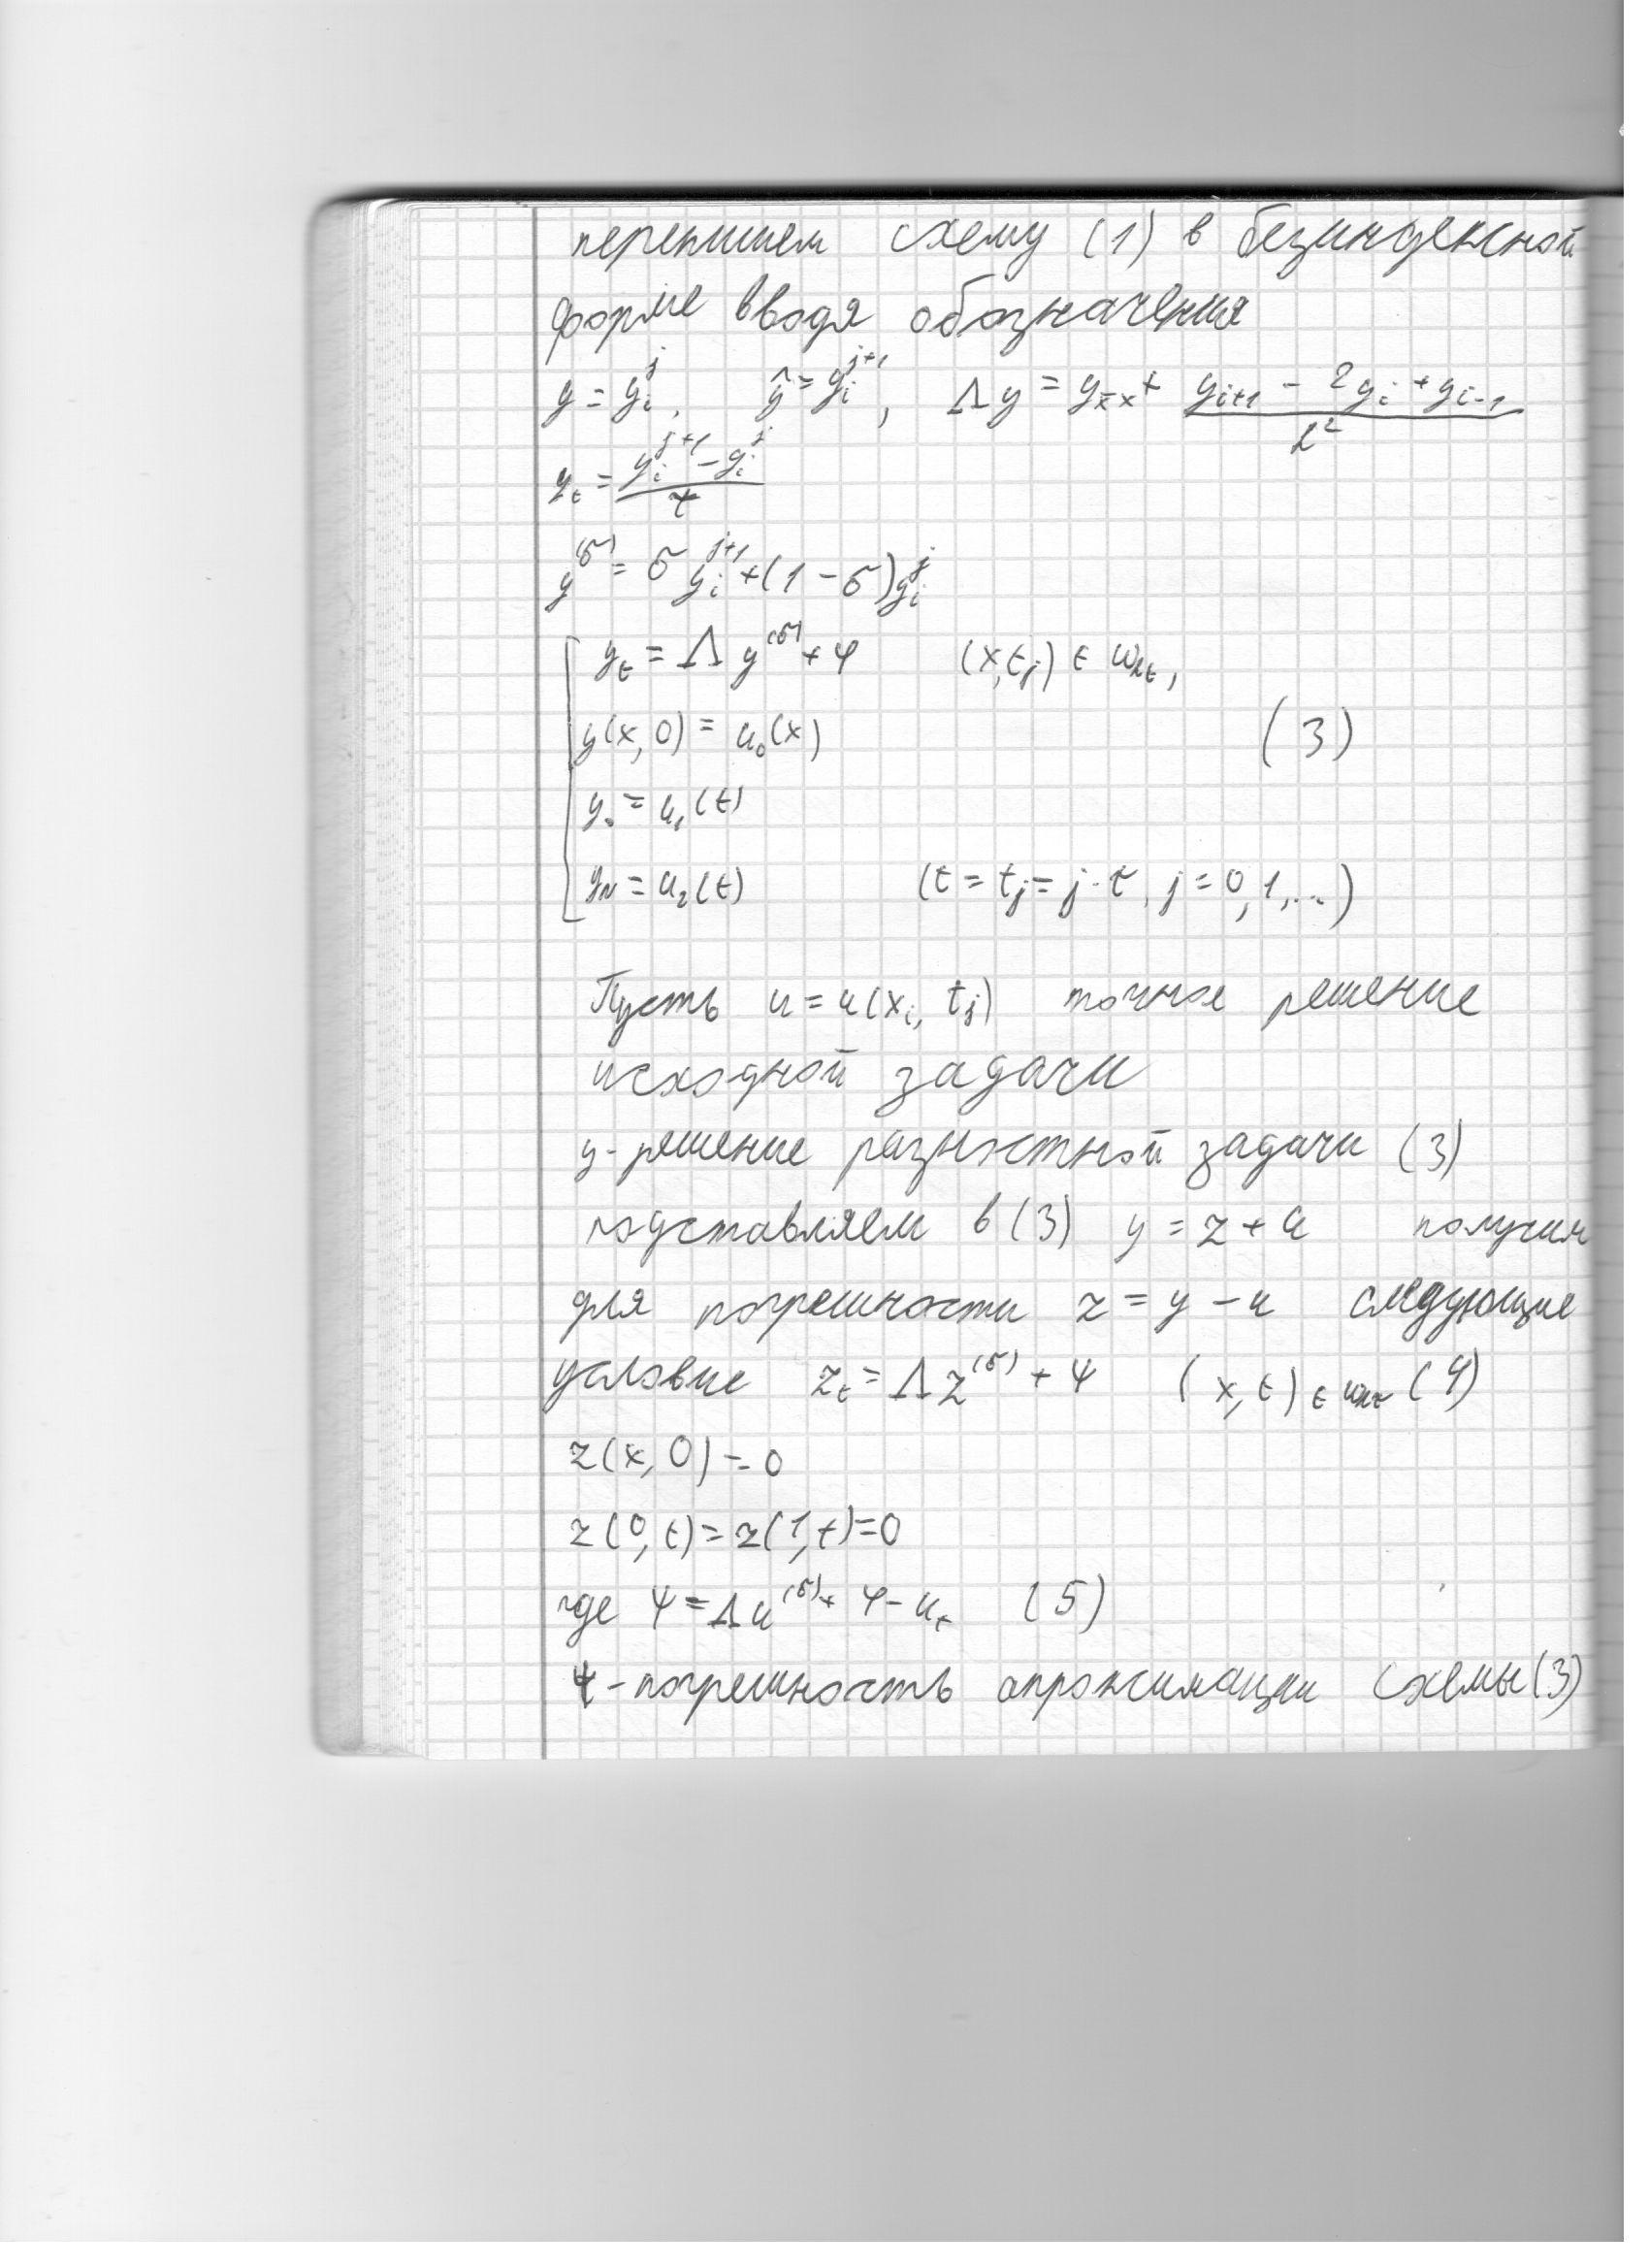 перепишем схему (1) в безиндексной
форме вводя обозначения
y = y_i^j, ŷ = y_i^{j+1}, Λy = y_{x̄x} + (y_{i+1} - 2y_i + y_{i-1}) / h²
y_t = (y_i^{j+1} - y_i^j) / τ
y^{(σ)} = σ y_i^{j+1} + (1 - σ) y_i^j
y_t = Λ y^{(σ)} + φ (x, t_j) ∈ ω_{hτ},
y(x, 0) = u_0(x) (3)
y_0 = u_1(t)
y_N = u_2(t) (t = t_j = j·τ, j = 0, 1, ...)
Пусть u = u(x_i, t_j) точное решение
исходной задачи
y - решение разностной задачи (3)
подставляем в (3) y = z + u получим
для погрешности z = y - u следующие
условие z_t = Λ z^{(σ)} + ψ (x, t) ∈ ω_{hτ} (4)
z(x, 0) = 0
z(0, t) = z(1, t) = 0
где ψ = Λu^{(σ)} + φ - u_t (5)
ψ - погрешность апроксимации схемы (3)